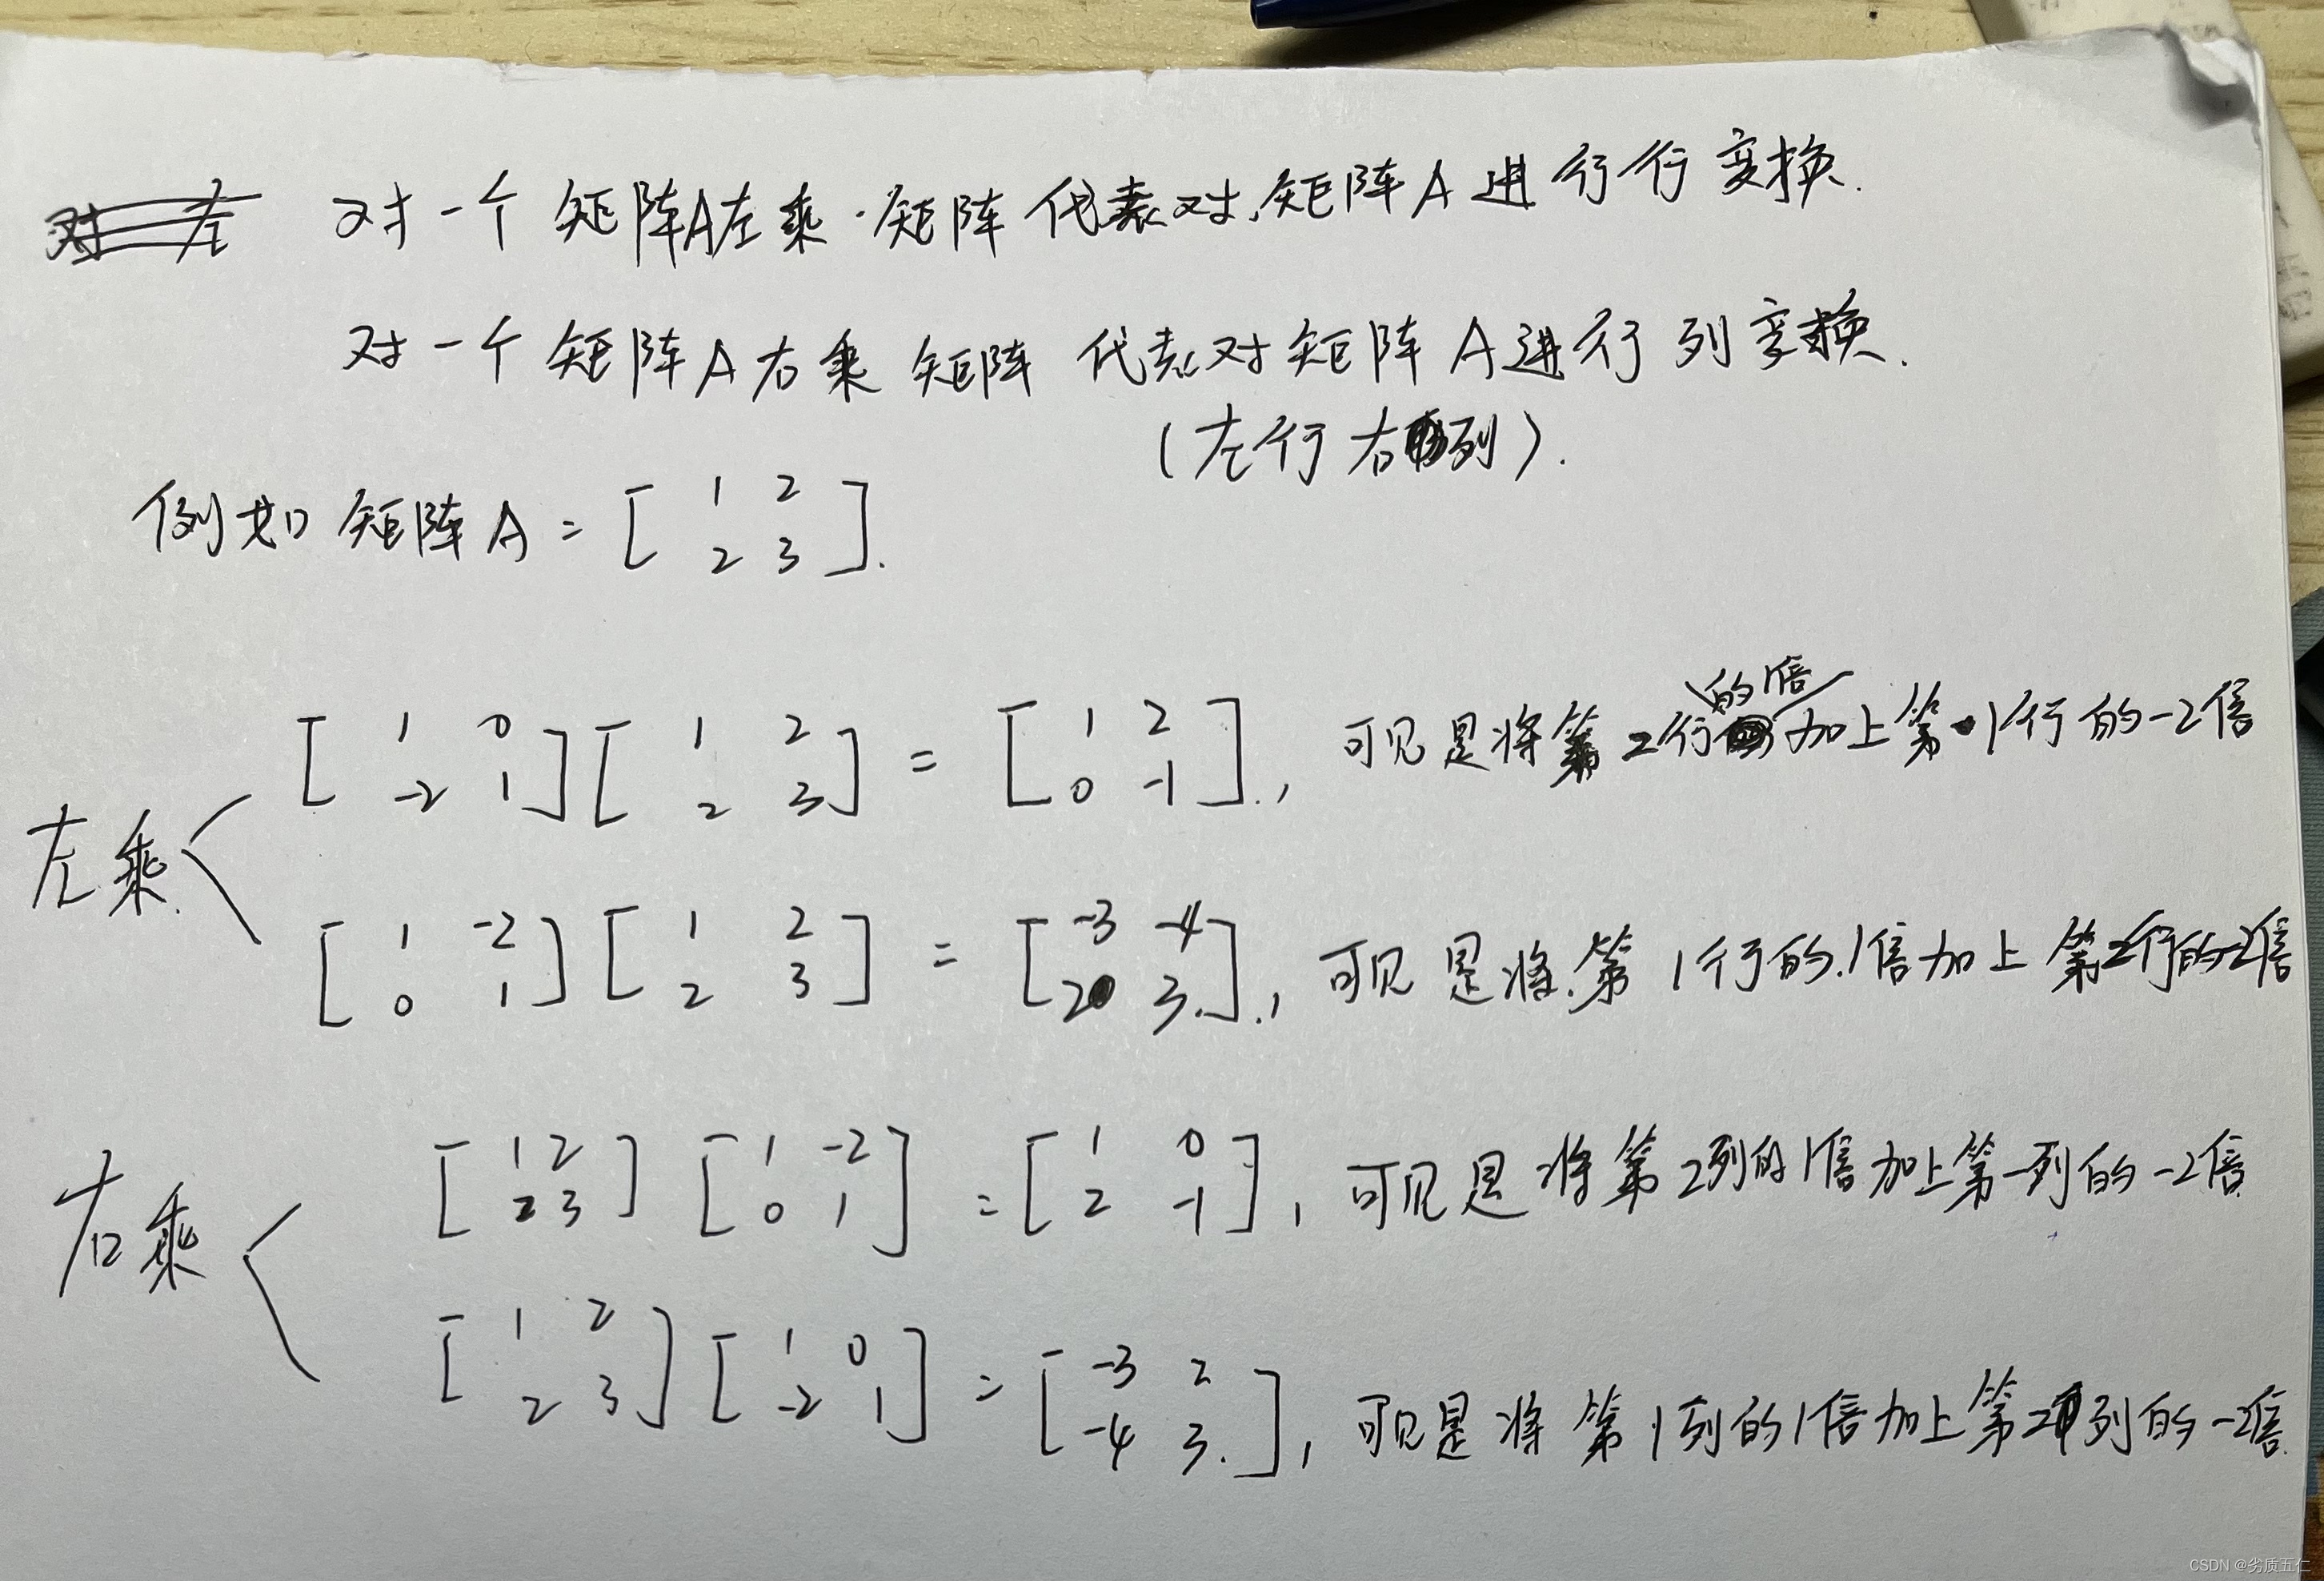 对一个矩阵A左乘矩阵代表对矩阵A进行行变换.
对一个矩阵A右乘矩阵代表对矩阵A进行列变换.
(左行右列).
例如矩阵A = [1 2; 2 3].
左乘
[1 0; -2 1] [1 2; 2 3] = [1 2; 0 -1], 可见是将第2行的1倍加上第1行的-2倍
[1 -2; 0 1] [1 2; 2 3] = [-3 -4; 2 3], 可见是将第1行的1倍加上第2行的-2倍
右乘
[1 2; 2 3] [1 -2; 0 1] = [1 0; 2 -1], 可见是将第2列的1倍加上第一列的-2倍
[1 2; 2 3] [1 0; -2 1] = [-3 2; -4 3], 可见是将第1列的1倍加上第2列的-2倍.
CSDN @劣质五仁